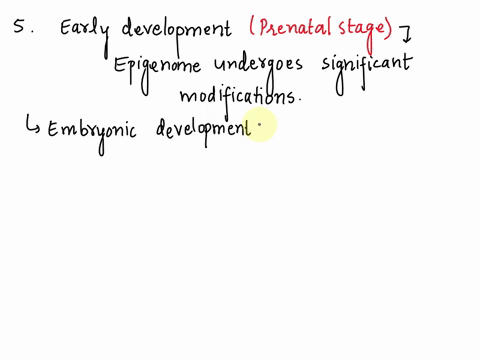 5. Early development (Prenatal stage) ↴
Epigenome undergoes significant
modifications.
↳ Embryonic development